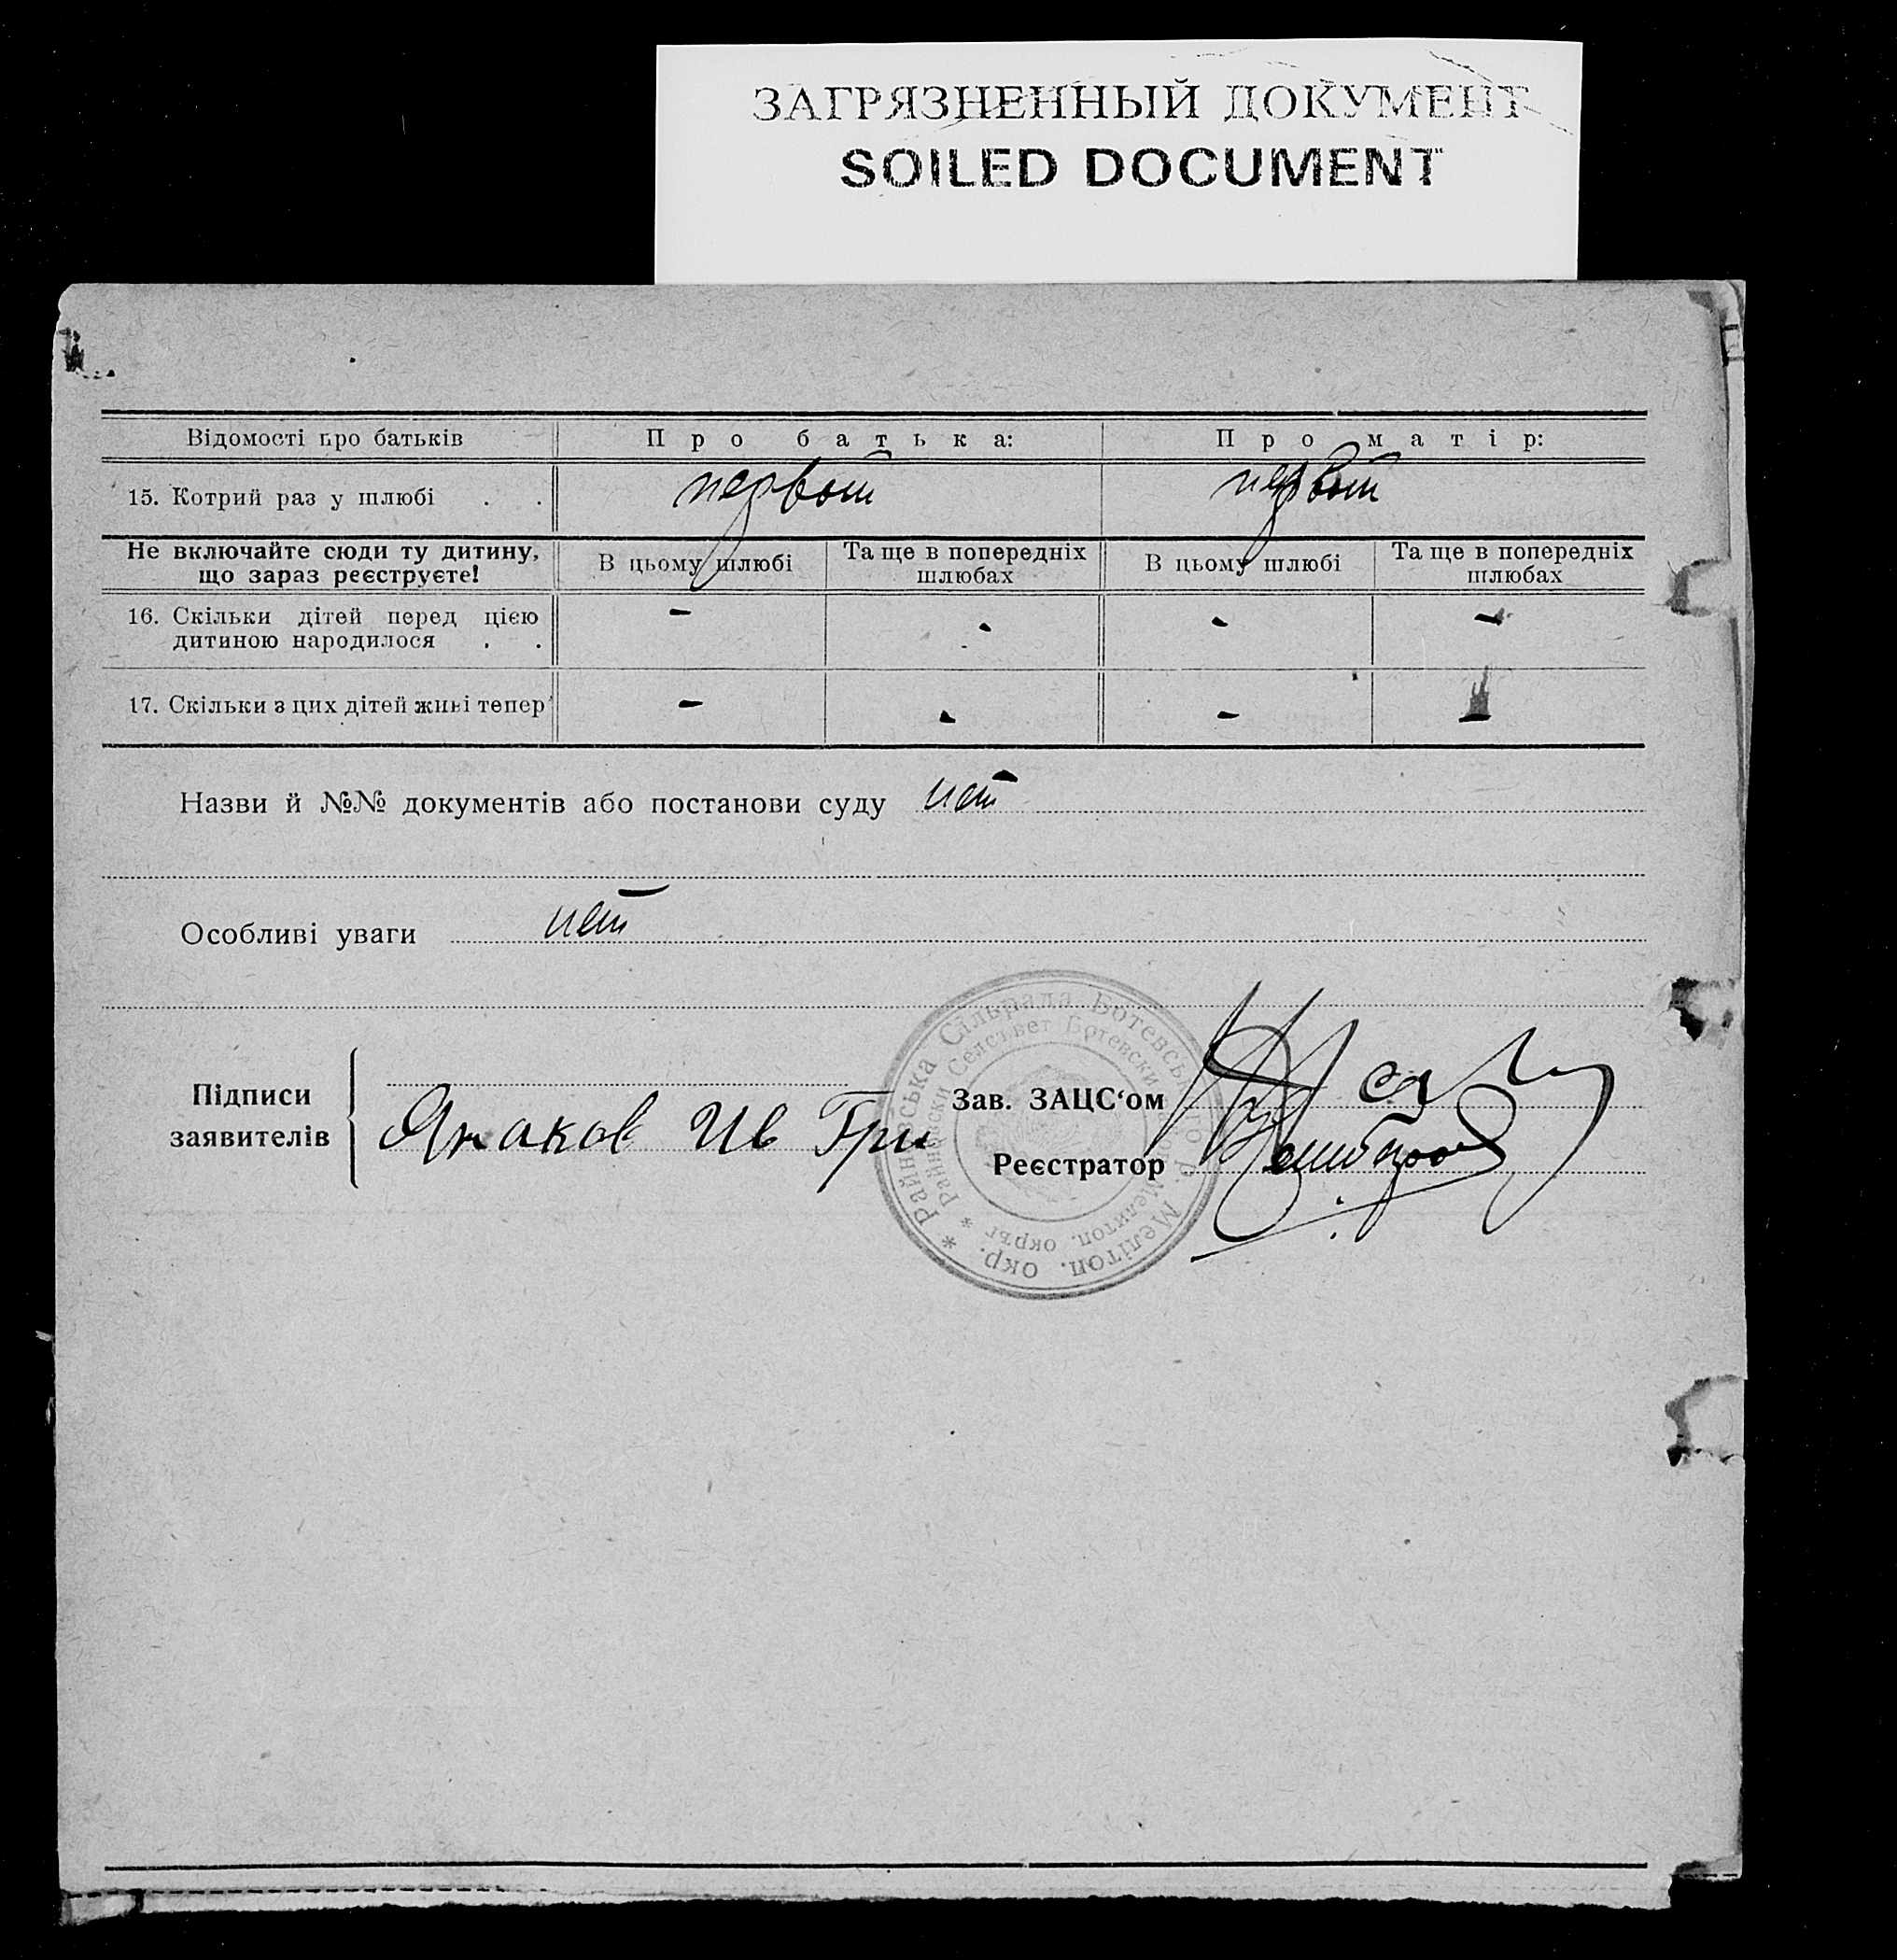 ЗАГРЯЗНЕННЫЙ ДОКУМЕНТ
SOILED DOCUMENT
Відомості про батьків
Про батька:
Про матір:
15. Котрий раз у шлюбі . .
первый
первый
Не включайте сюди ту дитину, що зараз реєструєте!
В цьому шлюбі
Та ще в попередніх шлюбах
В цьому шлюбі
Та ще в попередніх шлюбах
16. Скільки дітей перед цією
дитиною народилося . .
-
-
-
-
17. Скільки з цих дітей живі тепер
-
-
-
-
Назви й №№ документів або постанови суду нет
Особливі уваги нет
Підписи
заявителів
Ив Гри
Зав. ЗАЦС‘ом
Реєстратор
* Райнівська Сільрада Ботевського р. Мелітоп. окр.
* Райновски Селсъвет Ботевски Мелитоп. окръг